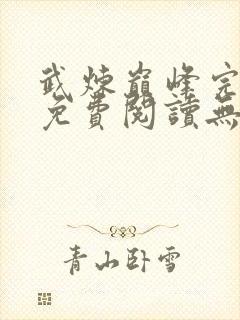 武煉巔峰完
免費閱讀無
青山臥雪